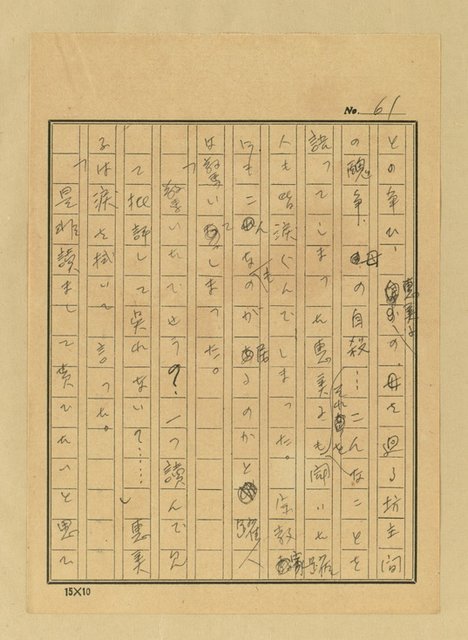 No. 61
との争ひ、恵美子の、母を廻る坊主間
の醜争、母の自殺…こんなことを
語つてしまつた恵美子も、それを聞いた
人も皆涙ぐんでしまつた。宗教
にもこんなのが居るのかと
は驚いてしまつた。
「驚いたでせうの?一つ讀んで見
て批評して呉れないで……」恵美
子は涙を拭いて言つた。
「是非讀まして貰ひたいと思て
15×10